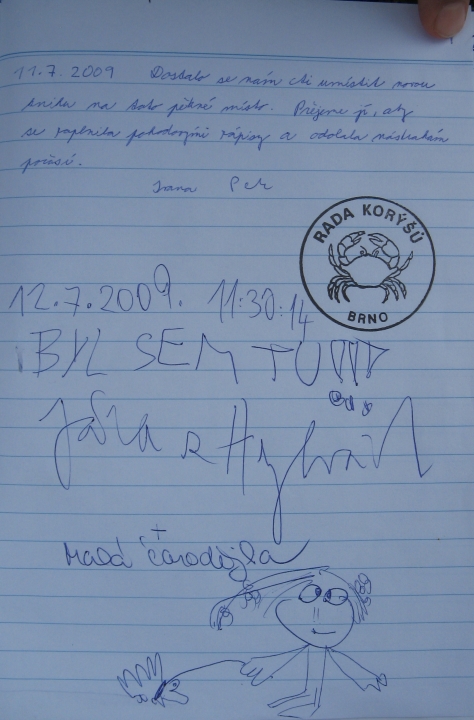 11.7.2009 Dostalo se nám cti umístit novou
knihu na toto pěkné místo. Přejeme jí, aby
se zaplnila pohodovými zápisy a odolala nástrahám
počasí.
Ivana Petr
RADA KORÝŠŮ
BRNO
12.7.2009. 11:30:14
BYL SEM TU!!!!
Jára
+
mladá čarodějka